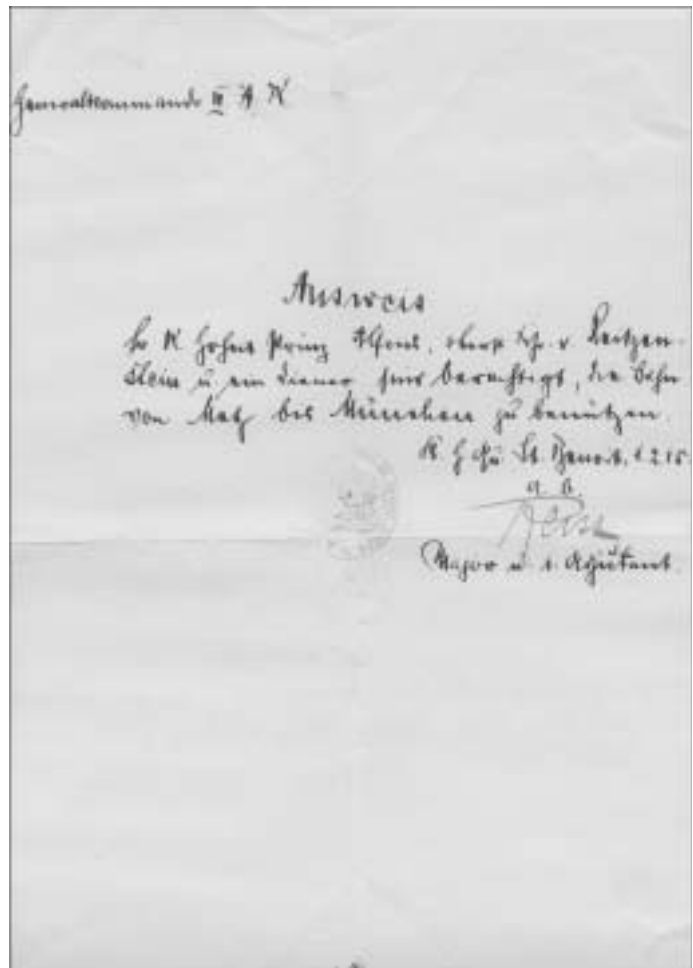 Generalkommando III A K
Ausweis
Sr K Hoheit Prinz Alfons, Oberst Frh. v. Leitzen-
stein u ein Diener sind berechtigt, die Bahn
von Metz bis München zu benützen.
K H Qu St. Benoit, 1.2 15.
a. B.
Major u. 1. Adjutant.